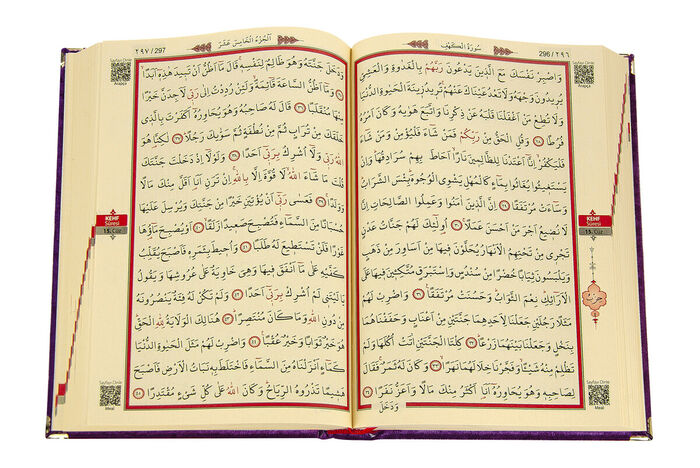 ٢٩٦ / 296
سُورَةُ الْكَهْفِ
وَاصْبِرْ نَفْسَكَ مَعَ الَّذِينَ يَدْعُونَ رَبَّهُمْ بِالْغَدٰوةِ وَالْعَشِيِّ
يُرِيدُونَ وَجْهَهُ وَلَا تَعْدُ عَيْنَاكَ عَنْهُمْ تُرِيدُ زِينَةَ الْحَيٰوةِ الدُّنْيَا
وَلَا تُطِعْ مَنْ اَغْفَلْنَا قَلْبَهُ عَنْ ذِكْرِنَا وَاتَّبَعَ هَوٰيهُ وَكَانَ اَمْرُهُ
فُرُطًا ﴿٢٨﴾ وَقُلِ الْحَقُّ مِنْ رَبِّكُمْ فَمَنْ شَاءَ فَلْيُؤْمِنْ وَمَنْ شَاءَ
فَلْيَكْفُرْ اِنَّا اَعْتَدْنَا لِلظَّالِمِينَ نَارًا اَحَاطَ بِهِمْ سُرَادِقُهَا وَاِنْ
يَسْتَغِيثُوا يُغَاثُوا بِمَاءٍ كَالْمُهْلِ يَشْوِي الْوُجُوهَ بِئْسَ الشَّرَابُ
وَسَاءَتْ مُرْتَفَقًا ﴿٢٩﴾ اِنَّ الَّذِينَ اٰمَنُوا وَعَمِلُوا الصَّالِحَاتِ اِنَّا
لَا نُضِيعُ اَجْرَ مَنْ اَحْسَنَ عَمَلًا ﴿٣٠﴾ اُولٰئِكَ لَهُمْ جَنَّاتُ عَدْنٍ
تَجْرِي مِنْ تَحْتِهِمُ الْاَنْهَارُ يُحَلَّوْنَ فِيهَا مِنْ اَسَاوِرَ مِنْ ذَهَبٍ
وَيَلْبَسُونَ ثِيَابًا خُضْرًا مِنْ سُنْدُسٍ وَاِسْتَبْرَقٍ مُتَّكِئِينَ فِيهَا عَلَى
الْاَرَائِكِ نِعْمَ الثَّوَابُ وَحَسُنَتْ مُرْتَفَقًا ﴿٣١﴾ وَاضْرِبْ لَهُمْ
مَثَلًا رَجُلَيْنِ جَعَلْنَا لِاَحَدِهِمَا جَنَّتَيْنِ مِنْ اَعْنَابٍ وَحَفَفْنَاهُمَا
بِنَخْلٍ وَجَعَلْنَا بَيْنَهُمَا زَرْعًا ﴿٣٢﴾ كِلْتَا الْجَنَّتَيْنِ اٰتَتْ اُكُلَهَا وَلَمْ
تَظْلِمْ مِنْهُ شَيْئًا وَفَجَّرْنَا خِلَالَهُمَا نَهَرًا ﴿٣٣﴾ وَكَانَ لَهُ ثَمَرٌ فَقَالَ
لِصَاحِبِهِ وَهُوَ يُحَاوِرُهُ اَنَا اَكْثَرُ مِنْكَ مَالًا وَاَعَزُّ نَفَرًا ﴿٣٤﴾
وَدَخَلَ
Sayfayı Dinle
Arapça
KEHF
Sûresi
15. Cüz
حزب
Sayfayı Dinle
Meal
٢٩٧ / 297
اَلْجُزْءُ الْخَامِسَ عَشَرَ
وَدَخَلَ جَنَّتَهُ وَهُوَ ظَالِمٌ لِنَفْسِهِ قَالَ مَا اَظُنُّ اَنْ تَبِيدَ هٰذِهِ اَبَدًا
﴿٣٥﴾ وَمَا اَظُنُّ السَّاعَةَ قَائِمَةً وَلَئِنْ رُدِدْتُ اِلٰى رَبِّي لَاَجِدَنَّ خَيْرًا
مِنْهَا مُنْقَلَبًا ﴿٣٦﴾ قَالَ لَهُ صَاحِبُهُ وَهُوَ يُحَاوِرُهُ اَكَفَرْتَ بِالَّذِي
خَلَقَكَ مِنْ تُرَابٍ ثُمَّ مِنْ نُطْفَةٍ ثُمَّ سَوّٰيكَ رَجُلًا ﴿٣٧﴾ لٰكِنَّا هُوَ
اللّٰهُ رَبِّي وَلَا اُشْرِكُ بِرَبِّي اَحَدًا ﴿٣٨﴾ وَلَوْلَا اِذْ دَخَلْتَ جَنَّتَكَ
قُلْتَ مَا شَاءَ اللّٰهُ لَا قُوَّةَ اِلَّا بِاللّٰهِ اِنْ تَرَنِ اَنَا اَقَلَّ مِنْكَ مَالًا
وَوَلَدًا ﴿٣٩﴾ فَعَسٰى رَبِّي اَنْ يُؤْتِيَنِ خَيْرًا مِنْ جَنَّتِكَ وَيُرْسِلَ عَلَيْهَا
حُسْبَانًا مِنَ السَّمَاءِ فَتُصْبِحَ صَعِيدًا زَلَقًا ﴿٤٠﴾ اَوْ يُصْبِحَ مَاؤُهَا
غَوْرًا فَلَنْ تَسْتَطِيعَ لَهُ طَلَبًا ﴿٤١﴾ وَاُحِيطَ بِثَمَرِهِ فَاَصْبَحَ يُقَلِّبُ
كَفَّيْهِ عَلٰى مَا اَنْفَقَ فِيهَا وَهِيَ خَاوِيَةٌ عَلٰى عُرُوشِهَا وَيَقُولُ
يَا لَيْتَنِي لَمْ اُشْرِكْ بِرَبِّي اَحَدًا ﴿٤٢﴾ وَلَمْ تَكُنْ لَهُ فِئَةٌ يَنْصُرُونَهُ
مِنْ دُونِ اللّٰهِ وَمَا كَانَ مُنْتَصِرًا ﴿٤٣﴾ هُنَالِكَ الْوَلَايَةُ لِلّٰهِ الْحَقِّ
هُوَ خَيْرٌ ثَوَابًا وَخَيْرٌ عُقْبًا ﴿٤٤﴾ وَاضْرِبْ لَهُمْ مَثَلَ الْحَيٰوةِ الدُّنْيَا
كَمَاءٍ اَنْزَلْنَاهُ مِنَ السَّمَاءِ فَاخْتَلَطَ بِهِ نَبَاتُ الْاَرْضِ فَاَصْبَحَ
هَشِيمًا تَذْرُوهُ الرِّيَاحُ وَكَانَ اللّٰهُ عَلٰى كُلِّ شَيْءٍ مُقْتَدِرًا ﴿٤٥﴾
Sayfayı Dinle
Arapça
KEHF
Sûresi
15. Cüz
Sayfayı Dinle
Meal